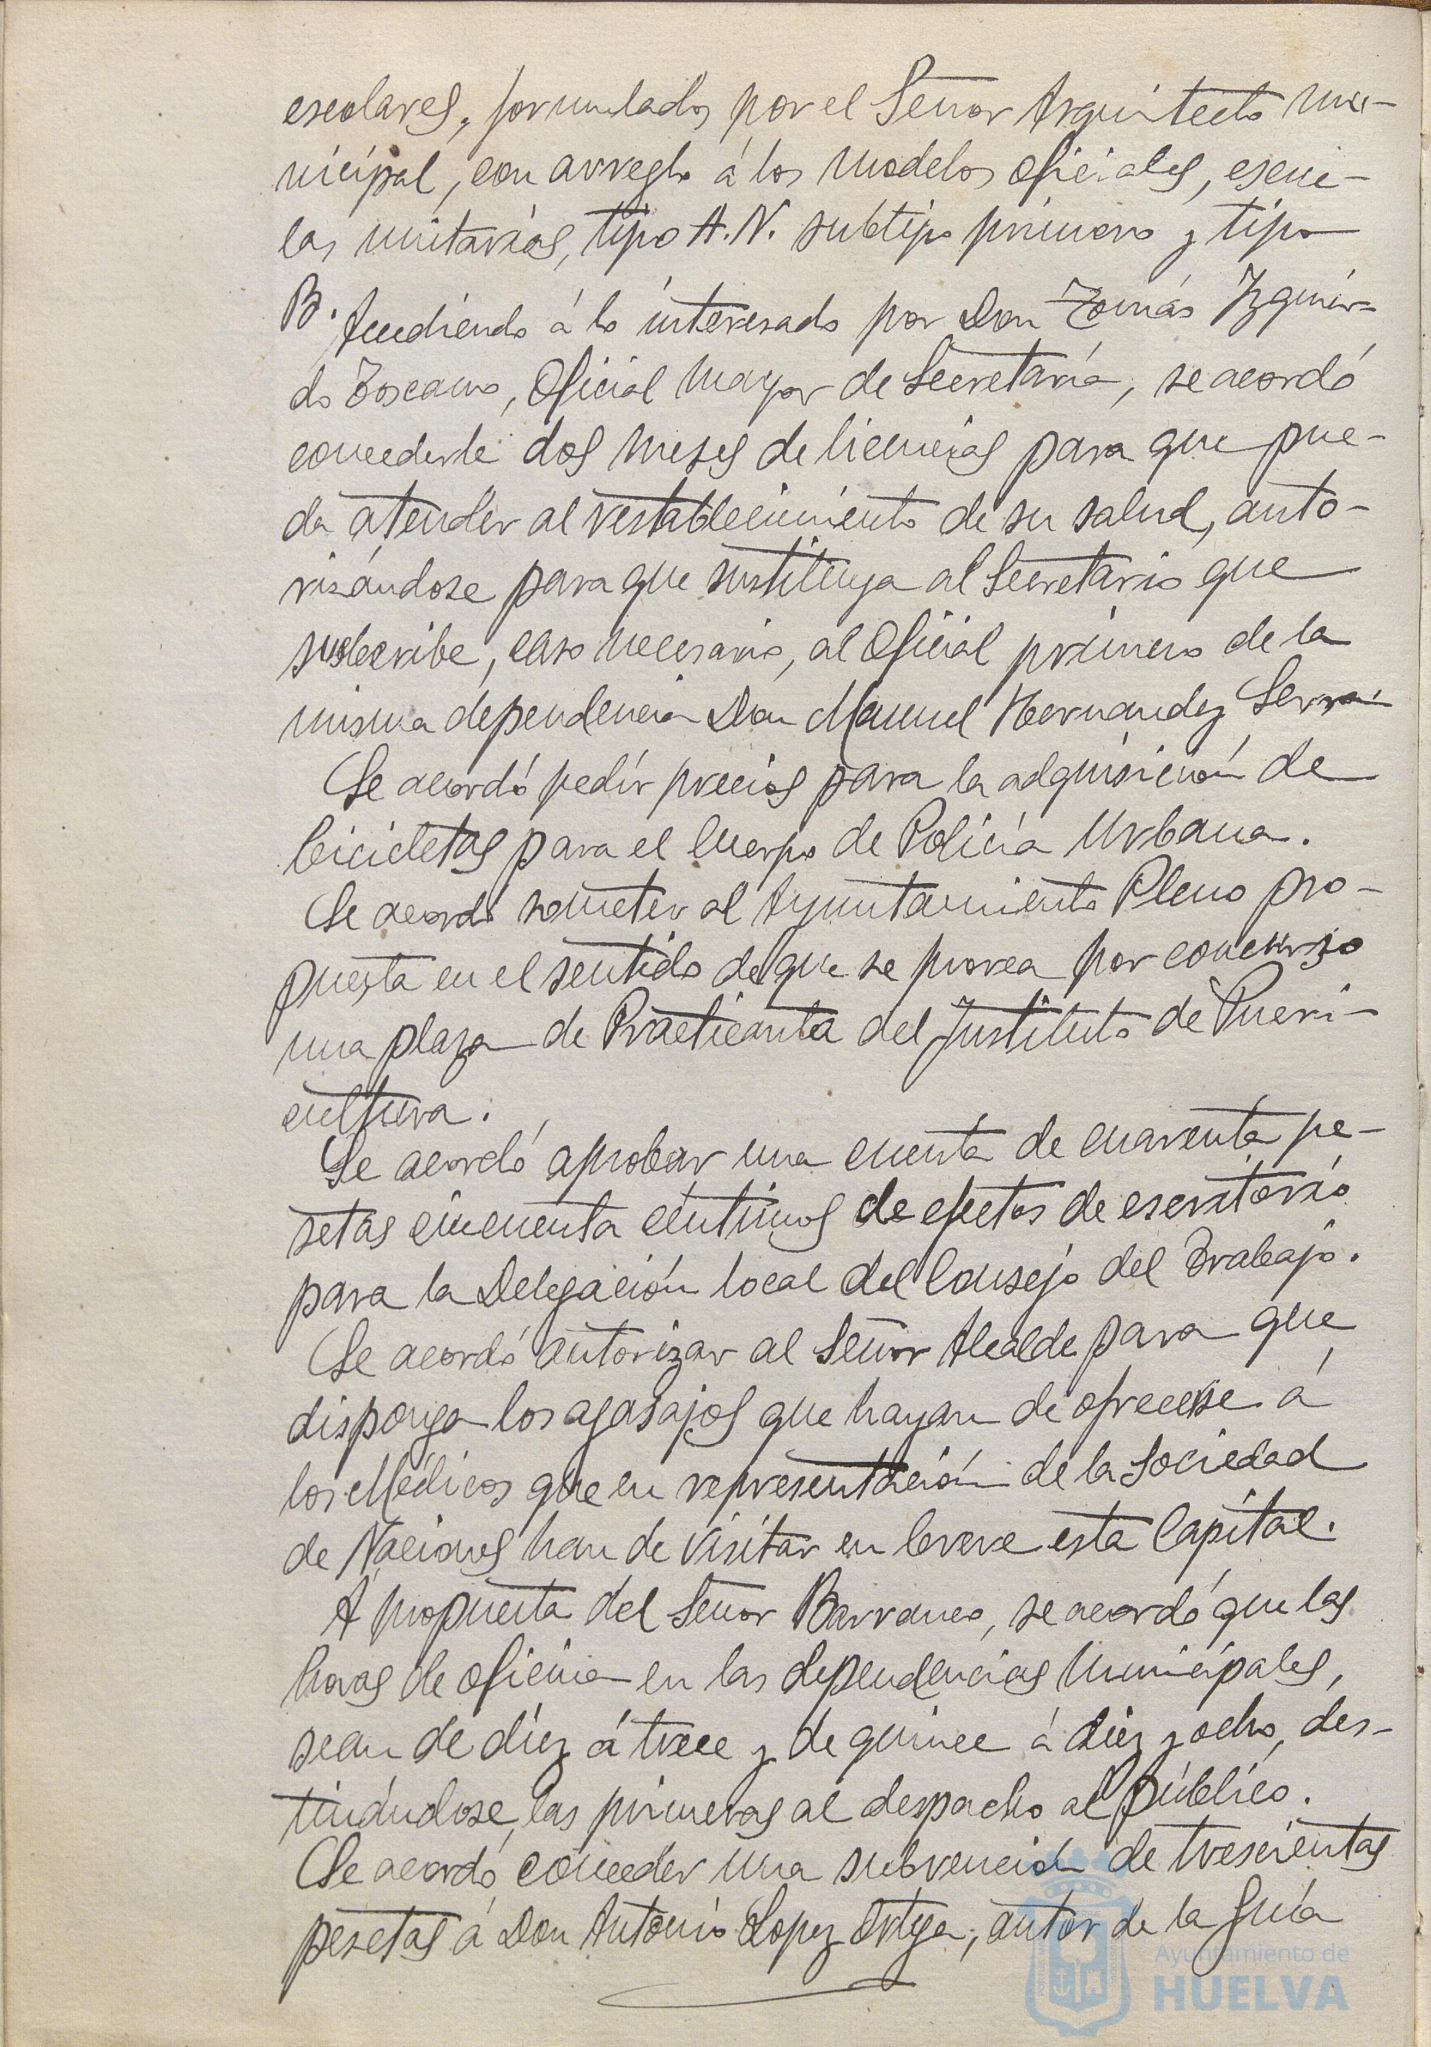 escolares, formulados por el Señor Arquitecto mu-
nicipal, con arreglo á los modelos oficiales, escue-
las unitarias, tipo A.N. subtipo primero y tipo
B.
Accediendo á lo interesado por Don Tomás Izquier-
do Toscano, Oficial mayor de Secretaría, se acordó
concederle dos meses de licencias para que pue-
da atender al restablecimiento de su salud, auto-
rizándose para que sustituya al Secretario que
suscribe, caso necesario, al Oficial primero de la
misma dependencia Don Manuel Hernandez
Se acordó pedir precios para la adquisición de
bicicletas para el Cuerpo de Policía Urbana.
Se acordó someter al Ayuntamiento Pleno pro-
puesta en el sentido de que se provea por concurso
una plaza de Practicanta del Instituto de Pueri-
cultura.
Se acordó aprobar una cuenta de cuarenta pe-
setas cincuenta céntimos de efectos de escritorio
para la Delegación local del Consejo del Trabajo.
Se acordó autorizar al Señor Alcalde para que
disponga los agasajos que hayan de ofrecerse á
los Médicos que en representación de la Sociedad
de Naciones han de visitar en breve esta Capital.
A propuesta del Señor Barranco, se acordó que las
horas de oficina en las dependencias municipales,
sean de diez á trece y de quince á diez y ocho, des-
tinándose las primeras al despacho al público.
Se acordó conceder una subvención de trescientas
pesetas á Don Antonio Lopez Ortega, autor de la Guía
Ayuntamiento de
HUELVA